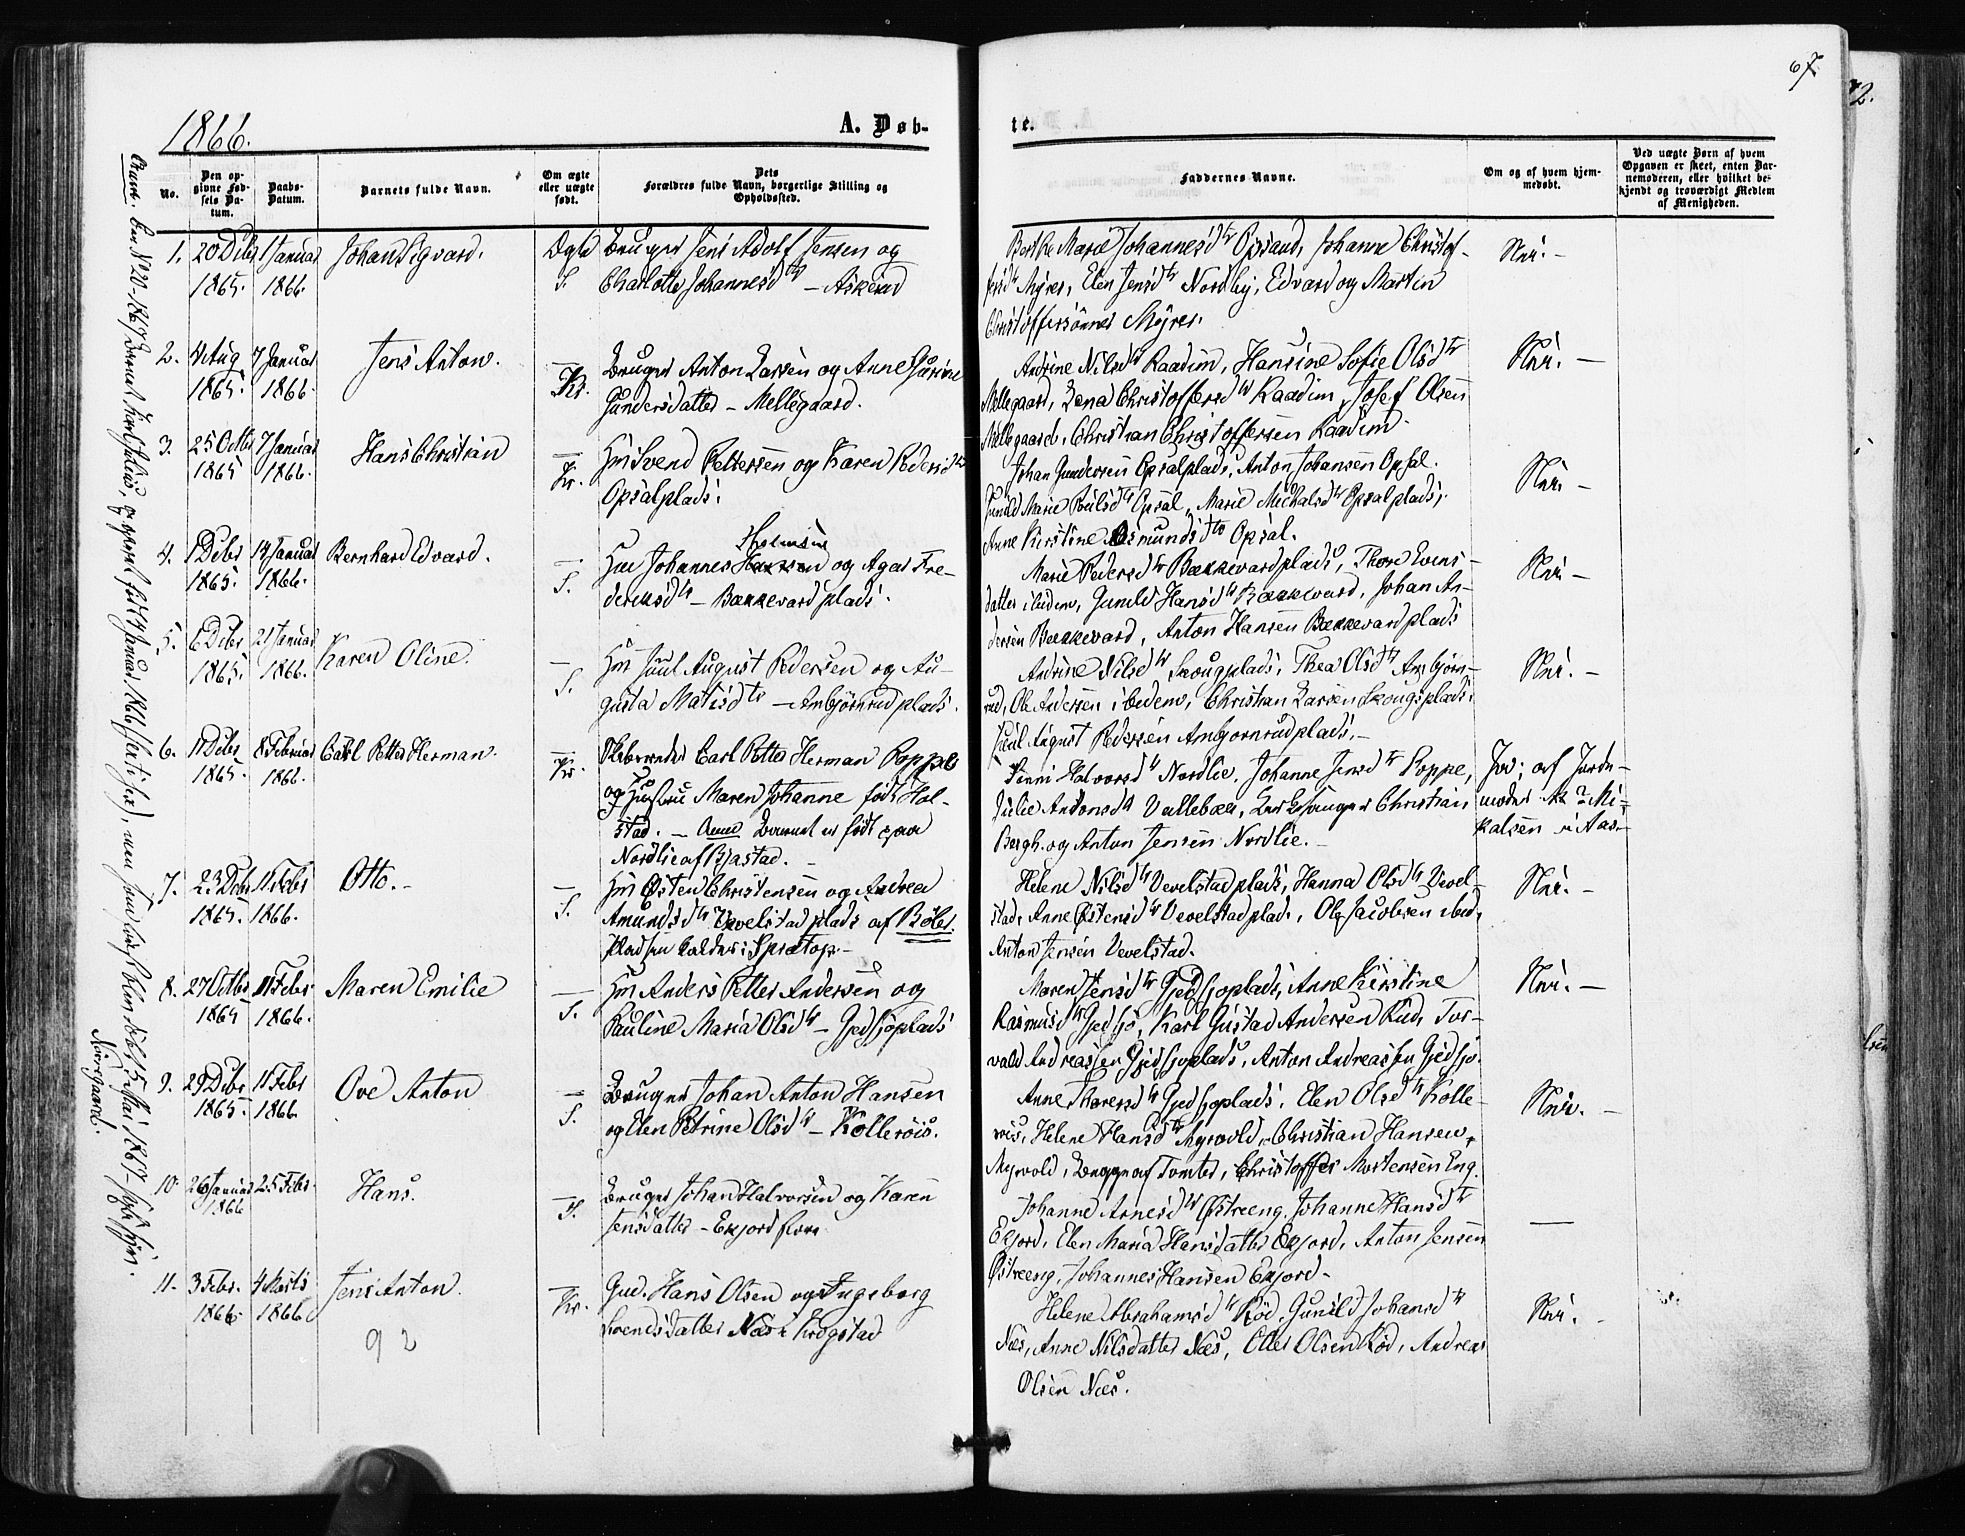 67
2.
1866.
A. Døb-
te.
No.
Den op-
givne Fød-
sels Da-
tum.
Daabs-
Datum.
Barnets fulde Navn.
Om ægte
eller uægte
født.
Dets
Forældres fulde Navn, borgerlige Stilling og
Opholdssted.
Faddernes Navne.
Om og af hvem hjem-
medøbt.
Ved uægte Børn af hvem
Opgaven er skeet, enten Bar-
nemoderen, eller hvilket be-
kjendt og troværdigt Medlem
af Menigheden.
1. 20 Debr 1 Januar Johan Sigvard.
1865. 1866.
S.
Bruger Jens Adolf Jensen og
Charlotte Johannesdtr – Askerud
Berthe Marie Johannesdtr Opsand, Johanne Christof-
fersdtr Myrer, Elen Jensdtr Nordby, Edvard og Martin
Christoffersønner Myrer.
Nei. –
2. 4 Aug 7 Januar Jens Anton.
1865. 1866.
Kr.
Bruger Anton Larsen og Anne Gurine
Gundersdatter – Mellegaard.
Andrine Nilsdtr Raadim, Hansine Sofie Olsdtr
Mellegaard, Lena Christoffersdtr Raadim, Josef Olsen
Mellegaard, Christian Christoffersen Raadim.
Nei. –
3. 25 Octbr 7 Januar Hans Christian
1865 1866.
Kr.
Hm Svend Pettersen og Karen Pedersdtr
Opsalplads.
Johan Gundersen Opsalplads, Anton Johansen Opsal.
Gunild Marie Poulsdtr Opsal, Marie Michalsdtr Opsalplads,
Anne Kirstine Asmundsdtr Opsal.
Nei –
4. 1 Debr 14 Januar Bernhard Edvard.
1865. 1866.
S.
Hm Johannes og Agat Fre-
deriksdtr – Bækkevardplads.
Marie Pedersdtr Bækkevardplads, Thore Evens-
datter ibidem, Gunild Hansdtr Bækkevard, Johan An-
dersen Bækkevard, Anton Hansen Bækkevardplads
Nei –
5. 6 Debr 21 Januar Karen Oline.
1865. 1866.
S.
Hm Juul August Pedersen og Au-
gusta Matisdtr – Ambjørnrudplads.
Andrine Nilsdtr Skougplads, Thea Olsdtr Ambjørn-
rud, Ole Andersen ibidem, Christian Larsen Skougsplads,
Juul August Pedersen Ambjørnrudplads. –
Nei. –
6. 11 Debr 8 Februar Carl Petter Herman.
1865. 1866.
Kr.
Carl Petter Herman Poppe
og Hustru Maren Johanne født Hol-
stad. – Anm Barnet er født paa
Nordlie af Bjastad. –
Halvorsdtr Nordlie, Johanne Jensdtr Poppe,
Julie Antonsdtr Vallebæk, Kirkesanger Christian
Bergh. og Anton Jensen Nordlie. –
Jo; af Jorde-
moder Mi-
kalsen i Aas –
7. 23 Debr 11 Febr Otto. –
1865. 1866.
S.
Hm Østen Christensen og Andrea
Amundsdtr Vevelstadplads af Bøler.
Pladsen kaldes: Sprætop –
Helene Nilsdtr Vevelstadplads, Hanna Olsdtr Vevel-
stad, Anne Østensdtr Vevelstadplads, Ole Jacobsen ibid,
Anton Jensen Vevelstad.
Nei. –
8. 27 Octbr 11 Febr Maren Emilie
1865 1866.
S.
Hm Anders Petter Andersen og
Pauline Maria Olsdtr – Gjedsjøplads
Maren Jensdtr Gjedsjoplads, Anne Kirstine
Rasmusdtr Gjedsjø, Karl Gustad Andersen Rud, Tor-
vald Andreassen Gjedsjoplads, Anton Andreassen Gjedsjo.
Nei. –
9. 29 Debr 11 Febr Ove Anton
1865. 1866
S.
Bruger Johan Anton Hansen
og Elen Petrine Olsdtr – Kollerøis.
Anne Thoresdtr Gjedsjoplads, Elen Olsdtr Kolle-
røis, Helene Hansdtr Myrvold, Christian Hansen,
Myrvold, Bruger af Tomter, Christoffer Mortensen Eng.
Nei. –
10. 26 Januar 25 Febr Hans.
1866
S.
Bruger Johan Halvorsen og Karen
Jensdatter – Exjord
Johanne Arnesdtr Østreeng, Johanne Hansdtr
Exjord, Elen Maria Hansdatter Exjord, Anton Jensen
Østreeng, Johannes Hansen Exjord –
11. 3 Febr. 4 Marts Jens Anton.
1866. 1866.
Kr.
Gud. Hans Olsen og Ingeborg
Svendsdatter Næs i Krogstad
Helene Abrahamsdtr Rød, Gunild Johansdtr
Næs, Anne Nilsdatter Næs, Otter Olsen Rød, Andreas
Olsen Næs.
Nei. –
92
Nörregaard.